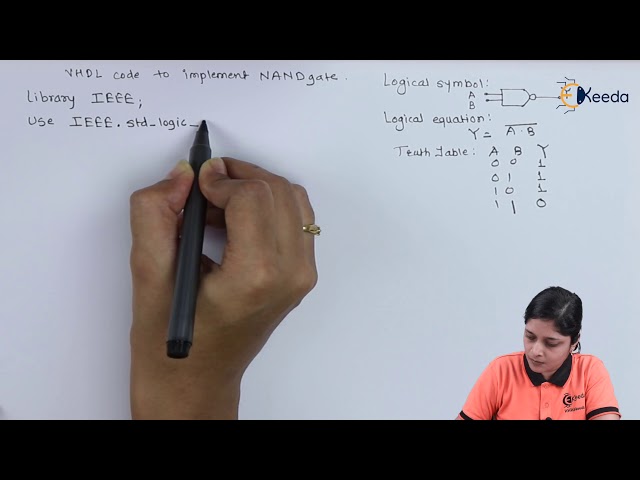 VHDL code to implement NAND gate.
Library IEEE;
Use IEEE.std_logic_
Logical symbol:
A
B
Ekeeda
Logical equation:
Y = A.B
Truth Table: A B Y
0 0 1
0 1 1
1 0 1
1 1 0
Ekeeda